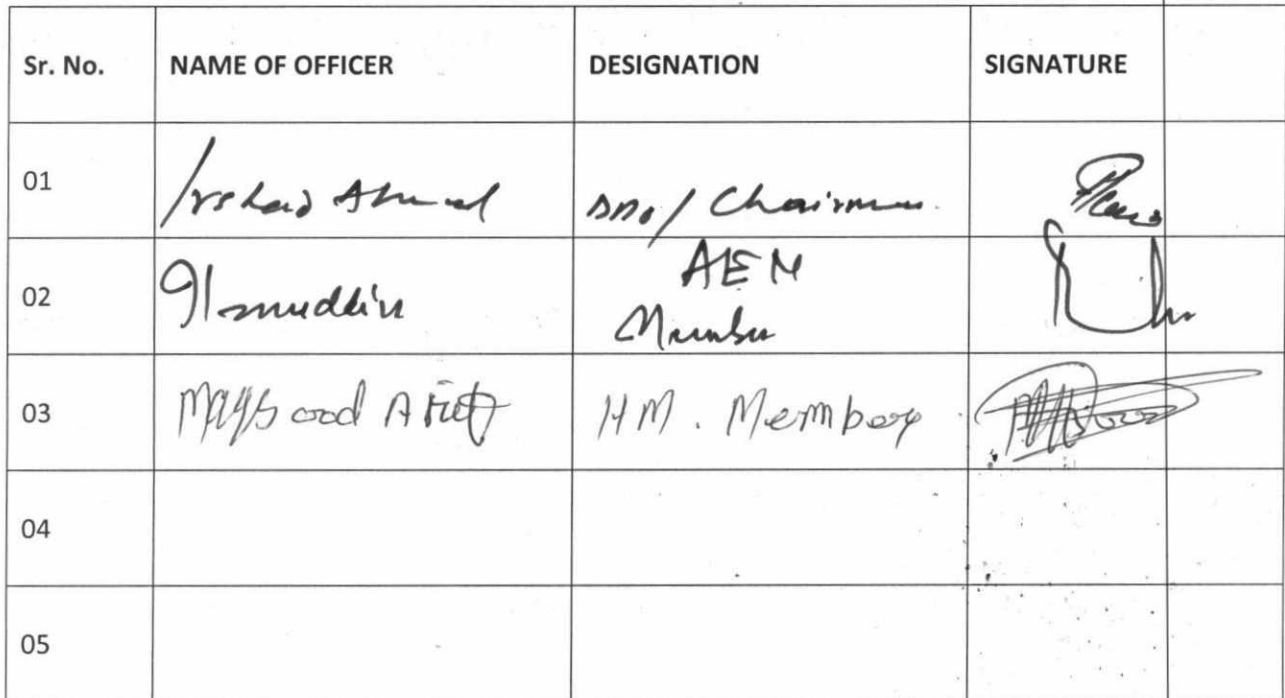 Sr. No. NAME OF OFFICER DESIGNATION SIGNATURE
01 Irshad Ahmed DDO/ Chairman
02 AEM
Member
03 Maqsood HM. Member
04
05